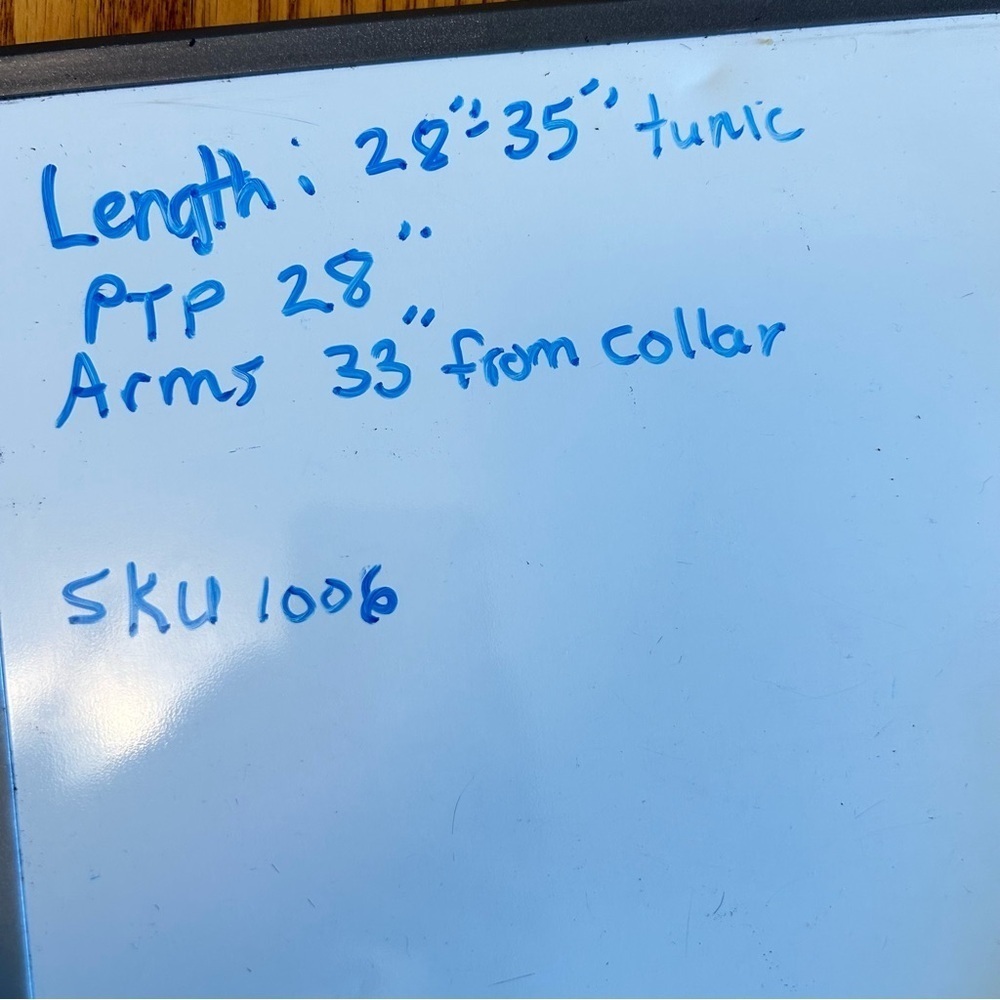 Length: 28"-35" tunic
PTP 28"
Arms 33" from collar
SKU 1006